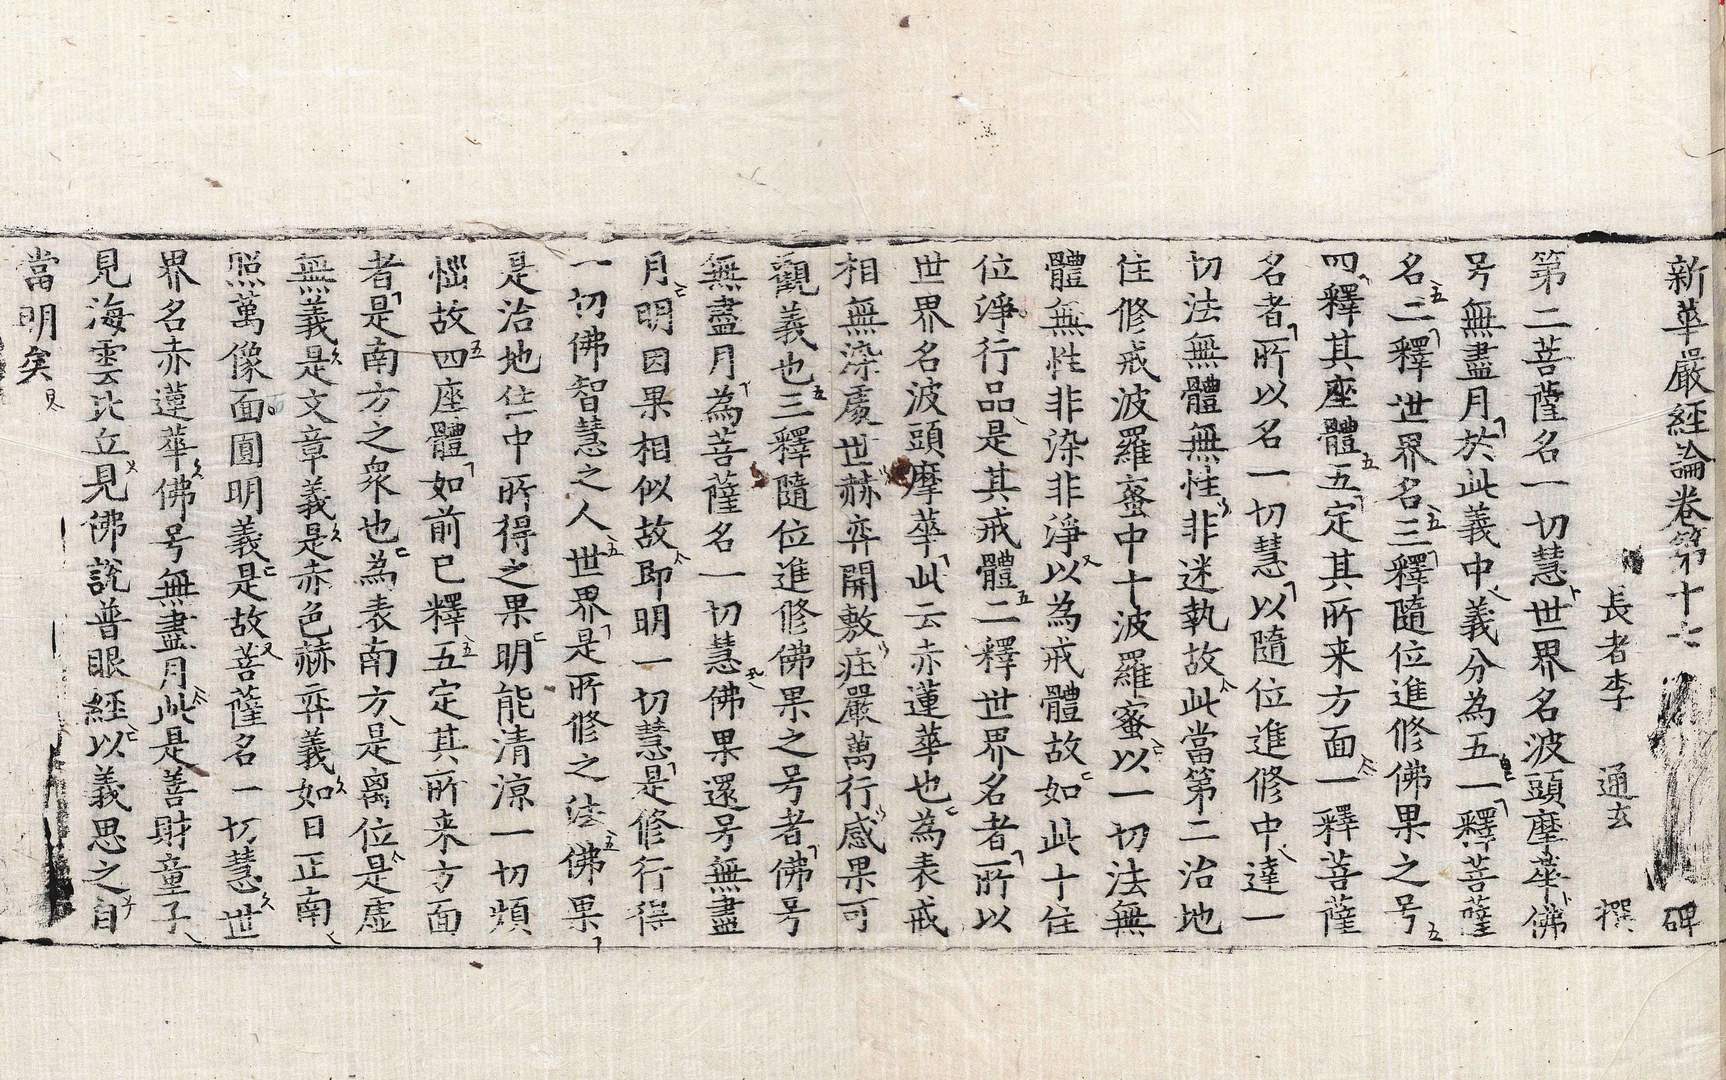 新華嚴經論卷第十七 碑
長者李 通玄 撰
第二菩薩名一切慧世界名波頭摩華佛
号無盡月於此義中義分為五一釋菩薩
名二釋世界名三釋隨位進修佛果之号
四釋其座體五定其所来方面一釋菩薩
名者所以名一切慧以隨位進修中達一
切法無體無性非迷執故此當第二治地
住修戒波羅蜜中十波羅蜜以一切法無
體無性非染非淨以為戒體故如此十住
位淨行品是其戒體二釋世界名者所以
世界名波頭摩華此云赤蓮華也為表戒
相無染處世赫弈開敷莊嚴萬行感果可
觀義也三釋隨位進修佛果之号者佛号
無盡月為菩薩名一切慧佛果還号無盡
月明因果相似故即明一切慧是修行得
一切佛智慧之人世界是所修之法佛果
是治地住中所得之果明能清涼一切煩
惱故四座體如前已釋五定其所来方面
者是南方之衆也為表南方是离位是虛
無義是文章義是赤色赫弈義如日正南
照萬像面圓明義是故菩薩名一切慧世
界名赤蓮華佛号無盡月此是善財童子
見海雲比丘見佛說普眼經以義思之自
當明矣